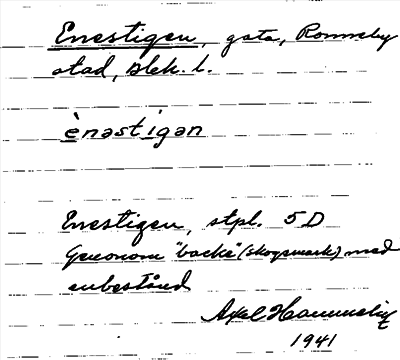 Enestigen, gata, Ronneby
stad, Blek. l.
ènəstigən
Enestigen, stpl. 5D
Genonom "backe" (skogsmark) med
enbestånd
Axel Hammelig
1941